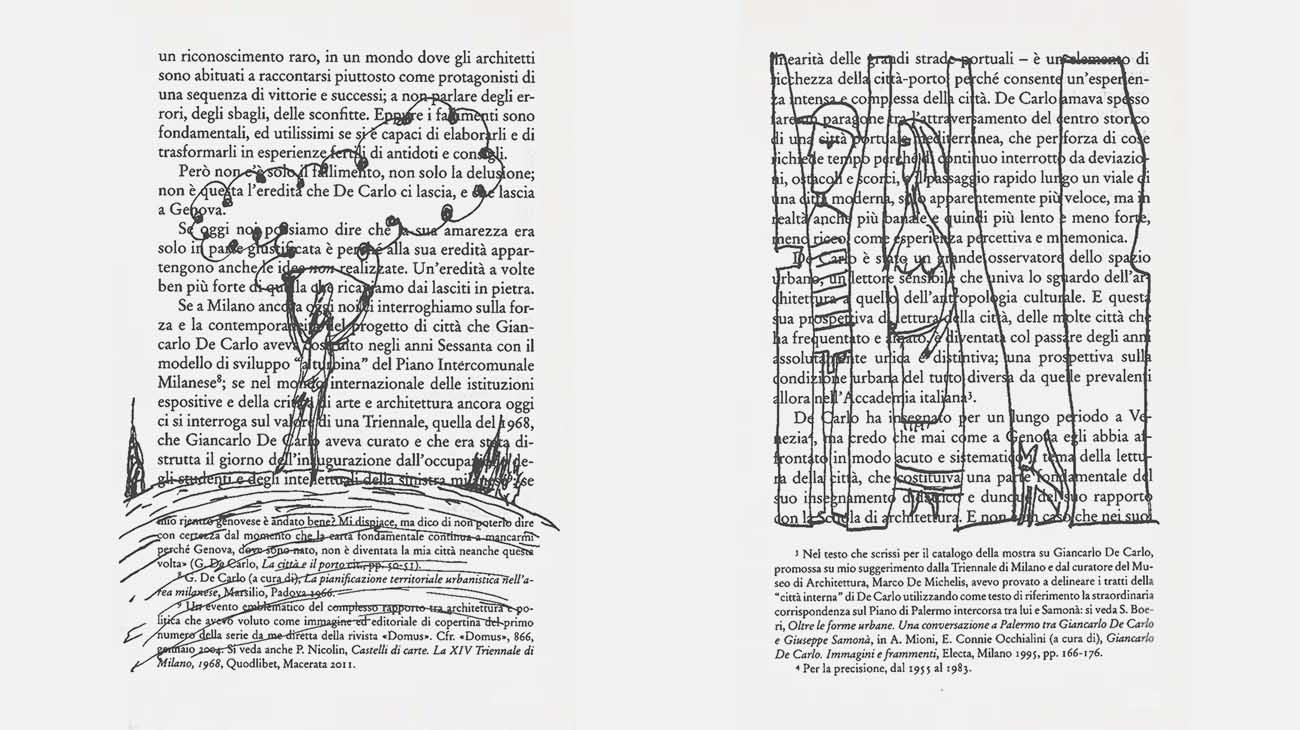 un riconoscimento raro, in un mondo dove gli architetti
sono abituati a raccontarsi piuttosto come protagonisti di
una sequenza di vittorie e successi; a non parlare degli er-
rori, degli sbagli, delle sconfitte. Eppure i fallimenti sono
fondamentali, ed utilissimi se si è capaci di elaborarli e di
trasformarli in esperienze fertili di antidoti e consigli.
Però non c'è solo il fallimento, non solo la delusione;
non è questa l'eredità che De Carlo ci lascia, e che lascia
a Genova.
Se oggi non possiamo dire che la sua amarezza era
solo in parte giustificata è perché alla sua eredità appar-
tengono anche le idee non realizzate. Un'eredità a volte
ben più forte di quella che ricaviamo dai lasciti in pietra.
Se a Milano ancora oggi noi ci interroghiamo sulla for-
za e la contemporaneità del progetto di città che Gian-
carlo De Carlo aveva costruito negli anni Sessanta con il
modello di sviluppo "a turbina" del Piano Intercomunale
Milanese⁸; se nel mondo internazionale delle istituzioni
espositive e della critica di arte e architettura ancora oggi
ci si interroga sul valore di una Triennale, quella del 1968,
che Giancarlo De Carlo aveva curato e che era stata di-
strutta il giorno dell'inaugurazione dall'occupazione de-
gli studenti e degli intellettuali della sinistra milanese⁹; se
mio rientro genovese è andato bene? Mi dispiace, ma dico di non poterlo dire
con certezza dal momento che la carta fondamentale continua a mancarmi
perché Genova, dove sono nato, non è diventata la mia città neanche questa
volta» (G. De Carlo, La città e il porto cit., pp. 50-51).
⁸ G. De Carlo (a cura di), La pianificazione territoriale urbanistica nell'a-
rea milanese, Marsilio, Padova 1966.
⁹ Un evento emblematico del complesso rapporto tra architettura e po-
litica che avevo voluto come immagine ed editoriale di copertina del primo
numero della serie da me diretta della rivista «Domus». Cfr. «Domus», 866,
gennaio 2004. Si veda anche P. Nicolin, Castelli di carte. La XIV Triennale di
Milano, 1968, Quodlibet, Macerata 2011.
linearità delle grandi strade portuali – è un elemento di
ricchezza della città-porto perché consente un'esperien-
za intensa e complessa della città. De Carlo amava spesso
fare un paragone tra l'attraversamento del centro storico
di una città portuale mediterranea, che per forza di cose
richiede tempo perché di continuo interrotto da deviazio-
ni, ostacoli e scorci, e il passaggio rapido lungo un viale di
una città moderna, solo apparentemente più veloce, ma in
realtà anche più banale e quindi più lento e meno forte,
meno ricco come esperienza percettiva e mnemonica.
De Carlo è stato un grande osservatore dello spazio
urbano, un lettore sensibile che univa lo sguardo dell'ar-
chitettura a quello dell'antropologia culturale. E questa
sua prospettiva di lettura della città, delle molte città che
ha frequentato e amato, è diventata col passare degli anni
assolutamente unica e distintiva; una prospettiva sulla
condizione urbana del tutto diversa da quelle prevalenti
allora nell'Accademia italiana³.
De Carlo ha insegnato per un lungo periodo a Ve-
nezia⁴, ma credo che mai come a Genova egli abbia af-
frontato in modo acuto e sistematico il tema della lettu-
ra della città, che costituiva una parte fondamentale del
suo insegnamento didattico e dunque del suo rapporto
con la Scuola di architettura. E non è un caso che nei suoi
³ Nel testo che scrissi per il catalogo della mostra su Giancarlo De Carlo,
promossa su mio suggerimento dalla Triennale di Milano e dal curatore del Mu-
seo di Architettura, Marco De Michelis, avevo provato a delineare i tratti della
"città interna" di De Carlo utilizzando come testo di riferimento la straordinaria
corrispondenza sul Piano di Palermo intercorsa tra lui e Samonà: si veda S. Boe-
ri, Oltre le forme urbane. Una conversazione a Palermo tra Giancarlo De Carlo
e Giuseppe Samonà, in A. Mioni, E. Connie Occhialini (a cura di), Giancarlo
De Carlo. Immagini e frammenti, Electa, Milano 1995, pp. 166-176.
⁴ Per la precisione, dal 1955 al 1983.